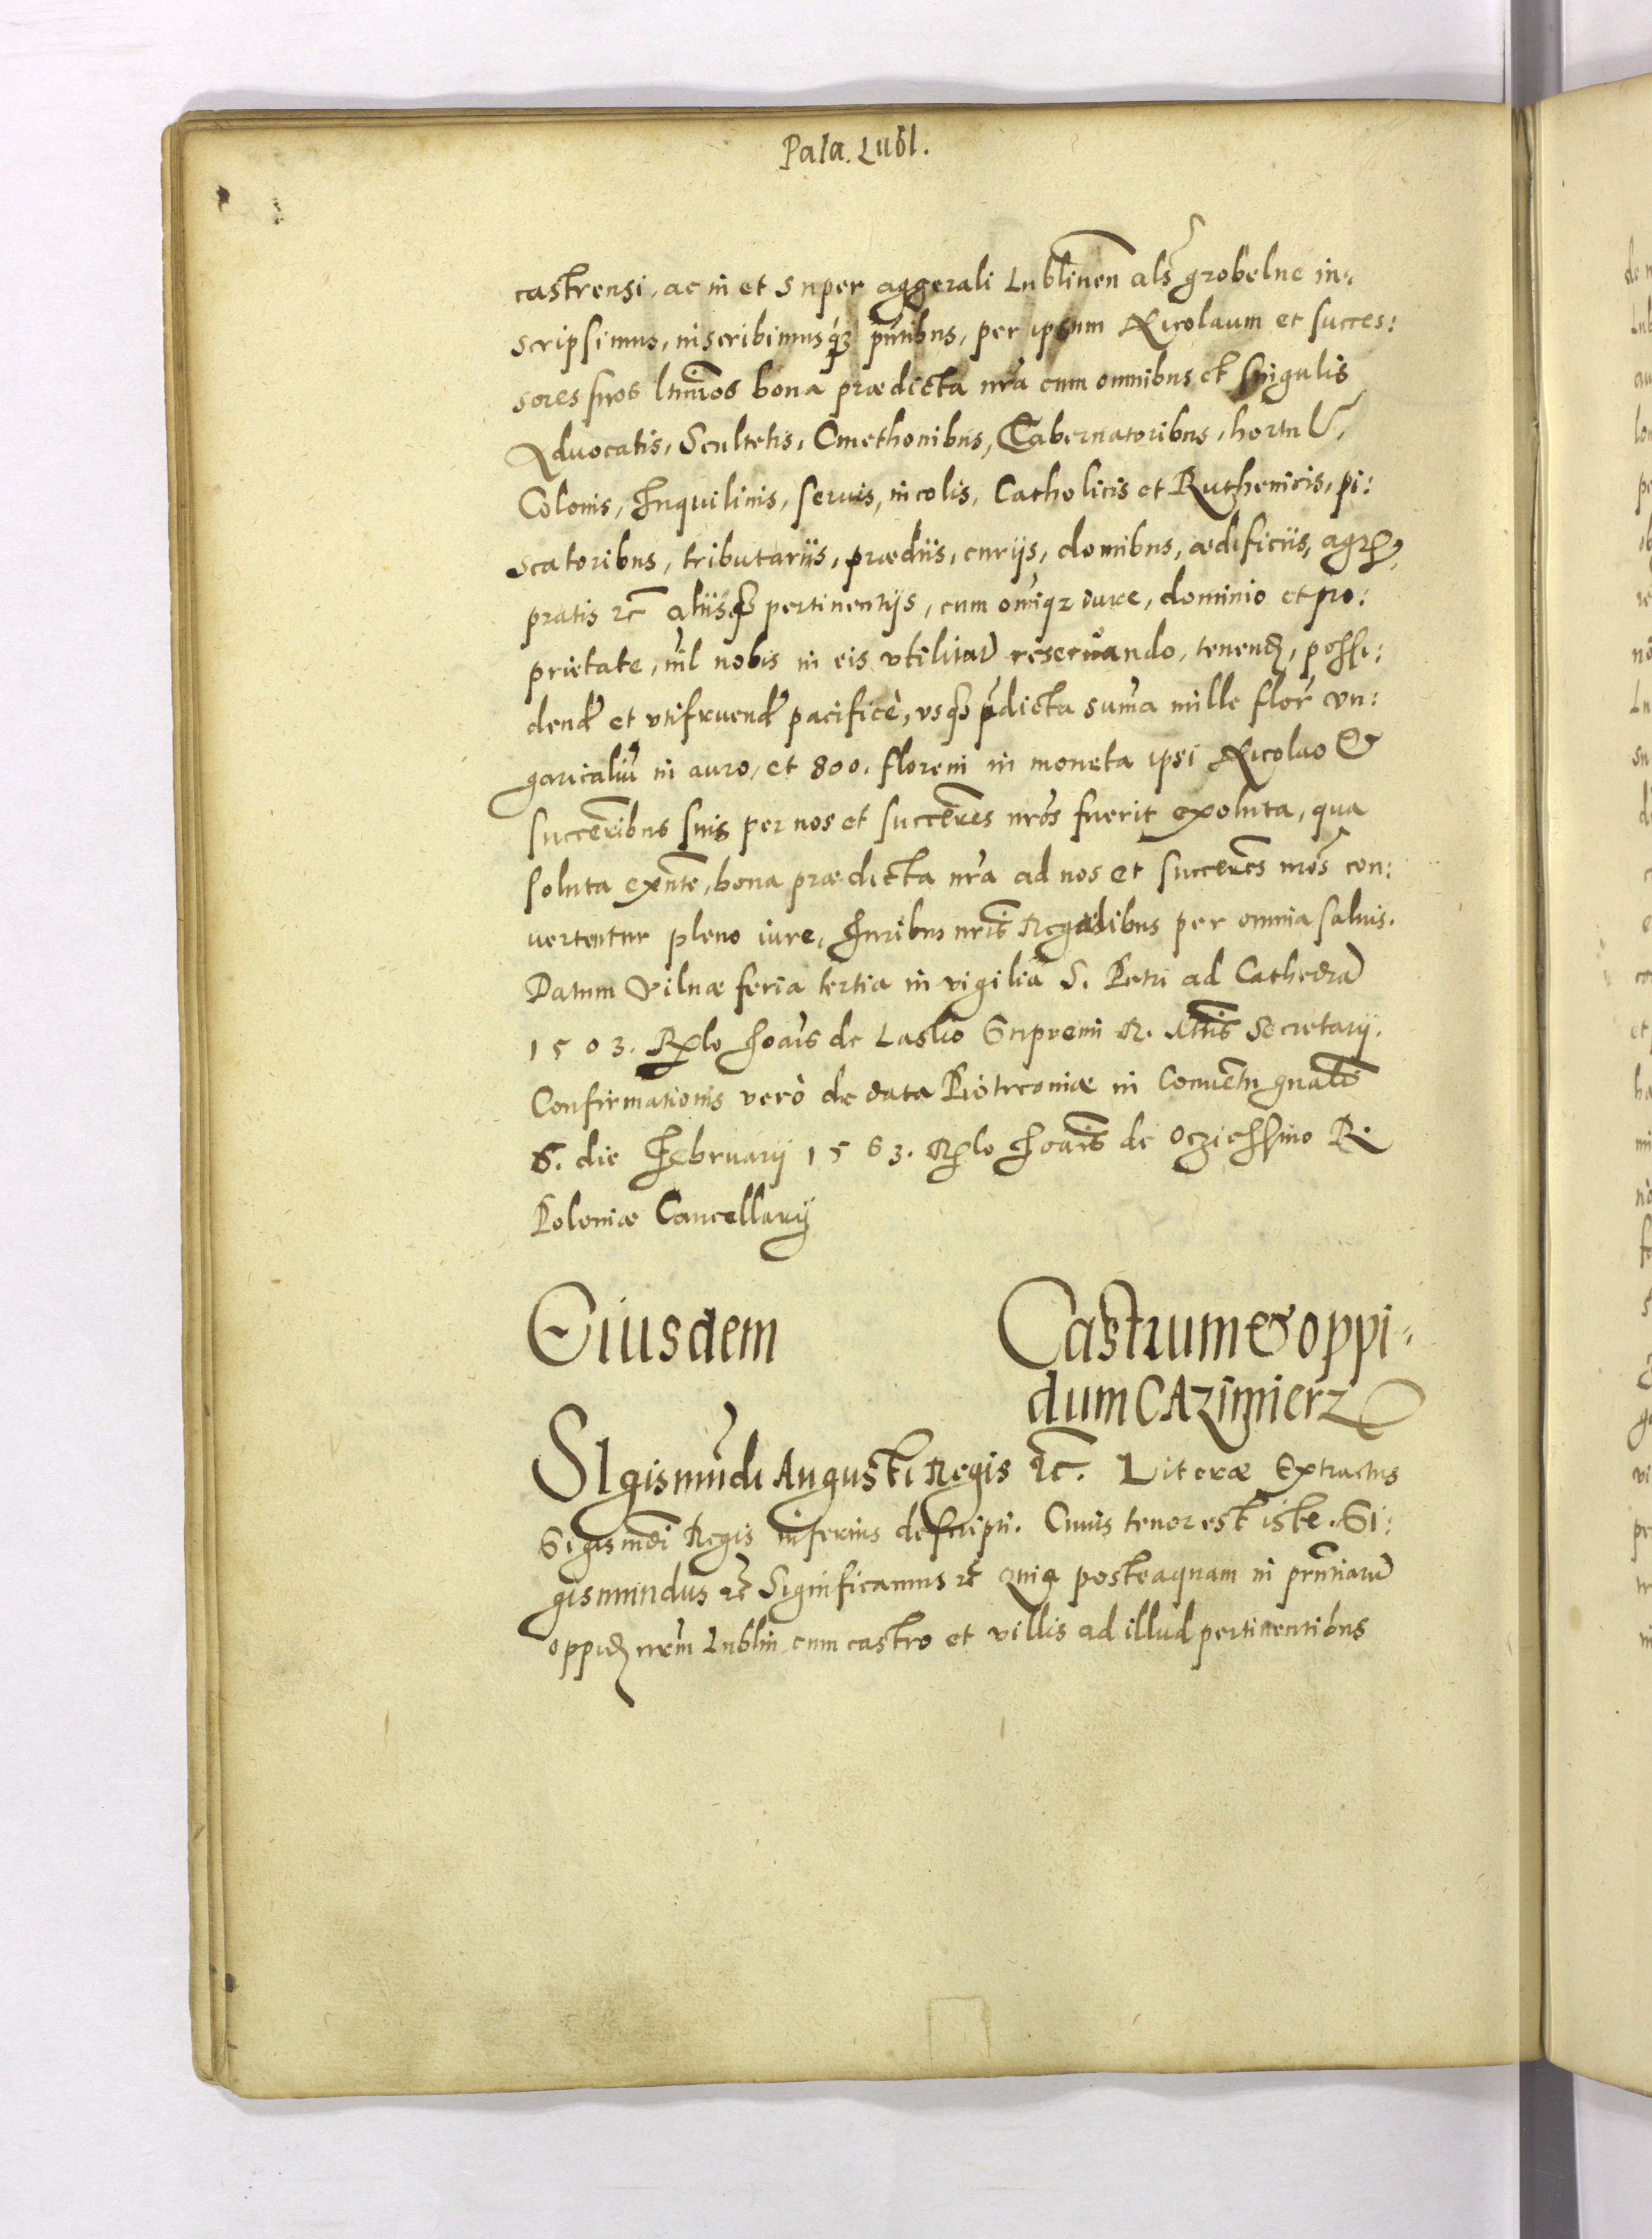 Pala. Lubl.
castrensi, ac in et super aggerali Lublinen̄ als grobelne in:
scripsimus, inscribimusq́ꝫ pn̄tibus, per ipsum Nicolaum et succes:
sores suos ltimos bona prædicta nr̄a cum omnibus et singulis
Advocatis, Scultetis, Cmethonibus, Tabernatoribus, hortul̄,
Colonis, Inquilinis, servis, incolis, Catholicis et Ruthenicis, pi:
scatoribus, tributariis, prædiis, curijs, domibus, ædificiis, agr
pratis ꝛc̄ aliisqꝫ pertinentijs, cum om̄iqꝫ iure, dominio et pro:
prietate, nīl nobis in eis utilitatū reservando, tenend, possi:
dend et utifruend pacificè, usqꝫ p̄dicta sum̄a mille flor̄ un:
garicaliū in auro, et 800. floreni in moneta ipsi Nicolao &
succer̄ibus suis per nos et succer̄es nr̄os fuerit exoluta, qua
soluta exn̄te, bona prædicta nr̄a ad nos et succer̄es nr̄os con:
vertentur pleno iure, Iuribus nr̄is Regalibus per omnia salvis.
Datum Vilnæ feria tertia in vigilia S. Petri ad Cathedrā
1503. Rꝑlo Ioan̄is de Lasko Supremi R. Mt̄tis Secretarij.
Confirmationis verò de data Piotrcoviæ in Conventu gn̄ali
6. die February 1563. Rꝑlo Ioan̄is de Oczieschino R.
Poloniæ Cancellarij
Eiusdem Castrum & oppi:
dum CAzimierz
SIgismūdi Augusti Regis ꝛc̄. Literæ Extractus
Sigismd̄i Regis inferius descripti. Cuius tenor est iste. Si:
gismundus ꝛc̄ Significamus ꝛc̄ Quia posteaquam in
oppid nr̄m Lublin cum castro et villis ad illud pertinentibus